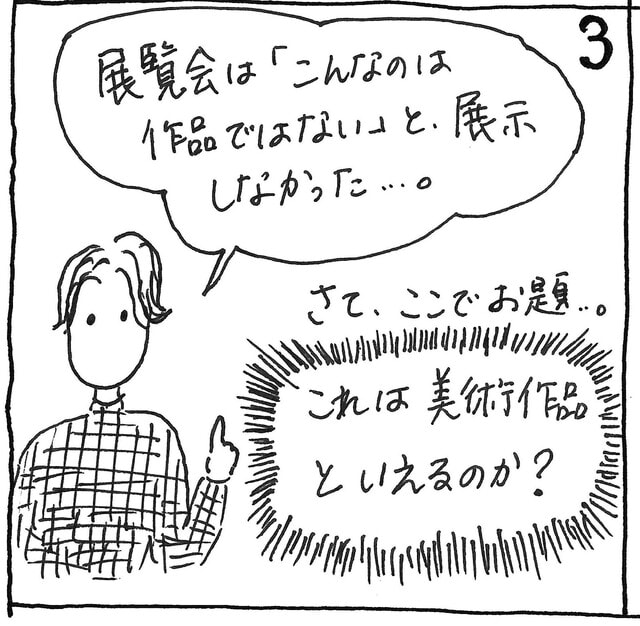 3
展覧会は「こんなのは
作品ではない」と、展示
しなかった…。
さて、ここでお題…。
これは美術作品
といえるのか？